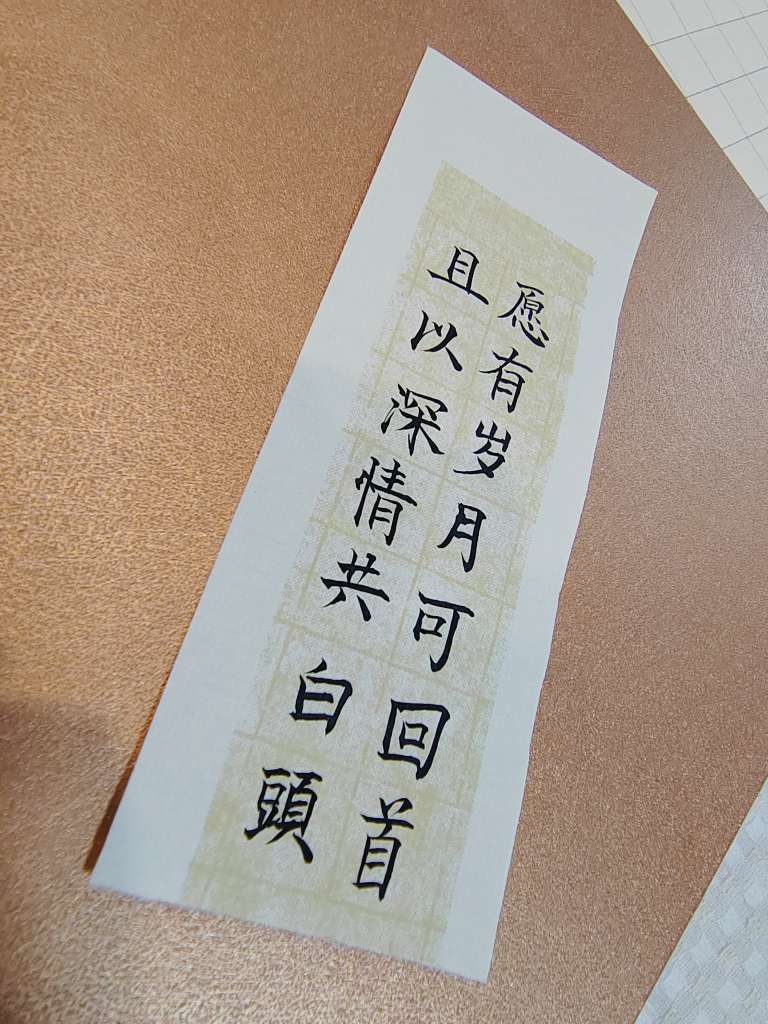 愿有岁月可回首
且以深情共白頭